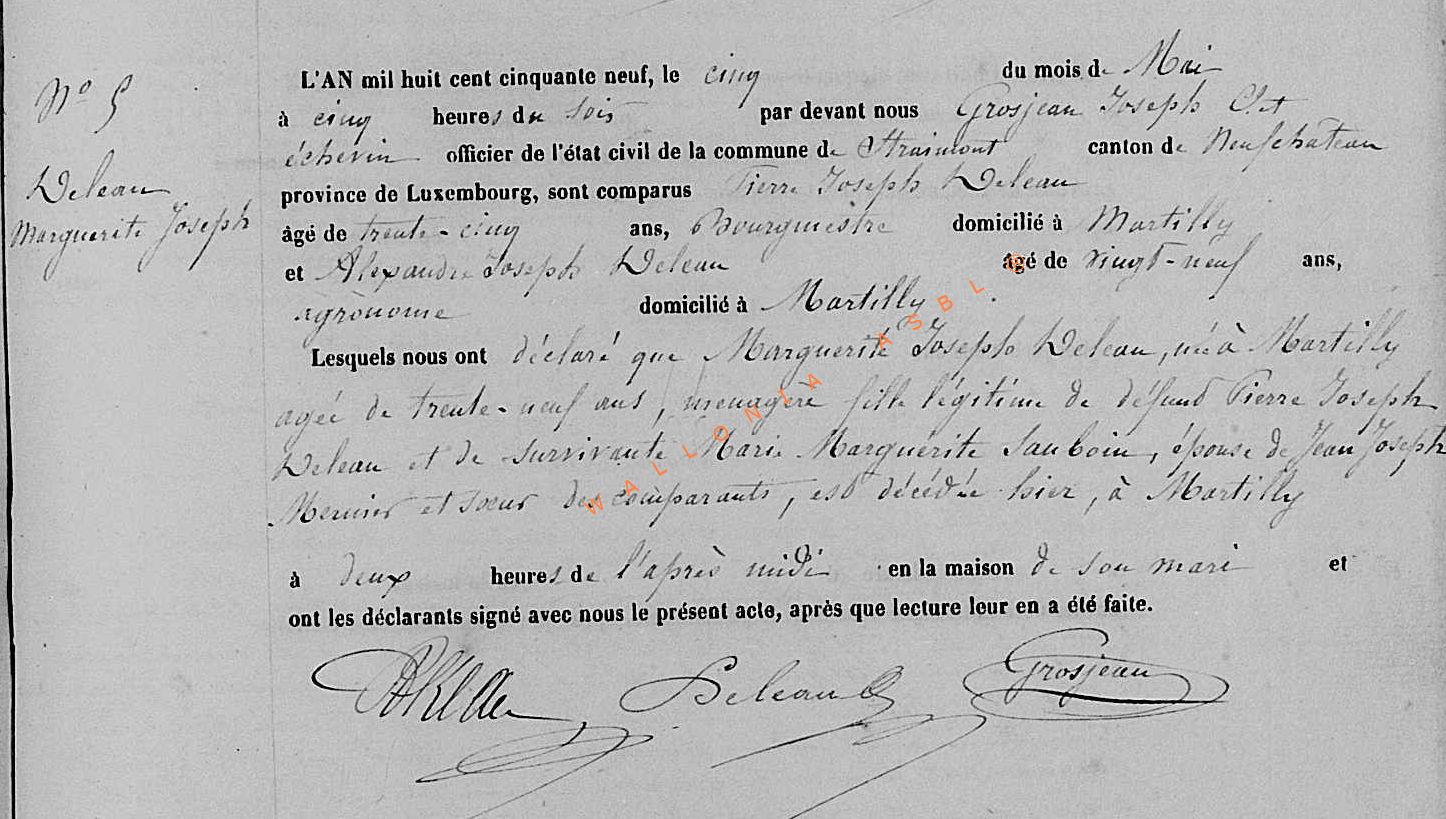 N° 5
Deleau
Marguerite Joseph
L'AN mil huit cent cinquante neuf, le cinq du mois de Mai
à cinq heures du soir par devant nous Grosjean Joseph Clet
échevin officier de l'état civil de la commune de Straimont canton de Neufchâteau
province de Luxembourg, sont comparus Pierre Joseph Deleau
âgé de trente-cinq ans, Bourgmestre domicilié à Martilly
et Alexandre Joseph Deleau âgé de vingt-neuf ans,
agronome domicilié à Martilly.
Lesquels nous ont déclaré que Marguerite Joseph Deleau, née à Martilly
agée de trente-neuf ans, ménagère fille légitime de défunt Pierre Joseph
Deleau et de survivante Marie Marguerite Sauboin, épouse de Jean Joseph
Mernier et soeur des comparants, est décédée hier, à Martilly
à deux heures de l'après midi en la maison de son mari et
ont les déclarants signé avec nous le présent acte, après que lecture leur en a été faite.
Deleau Grosjean
WALLONIA ASBL ©